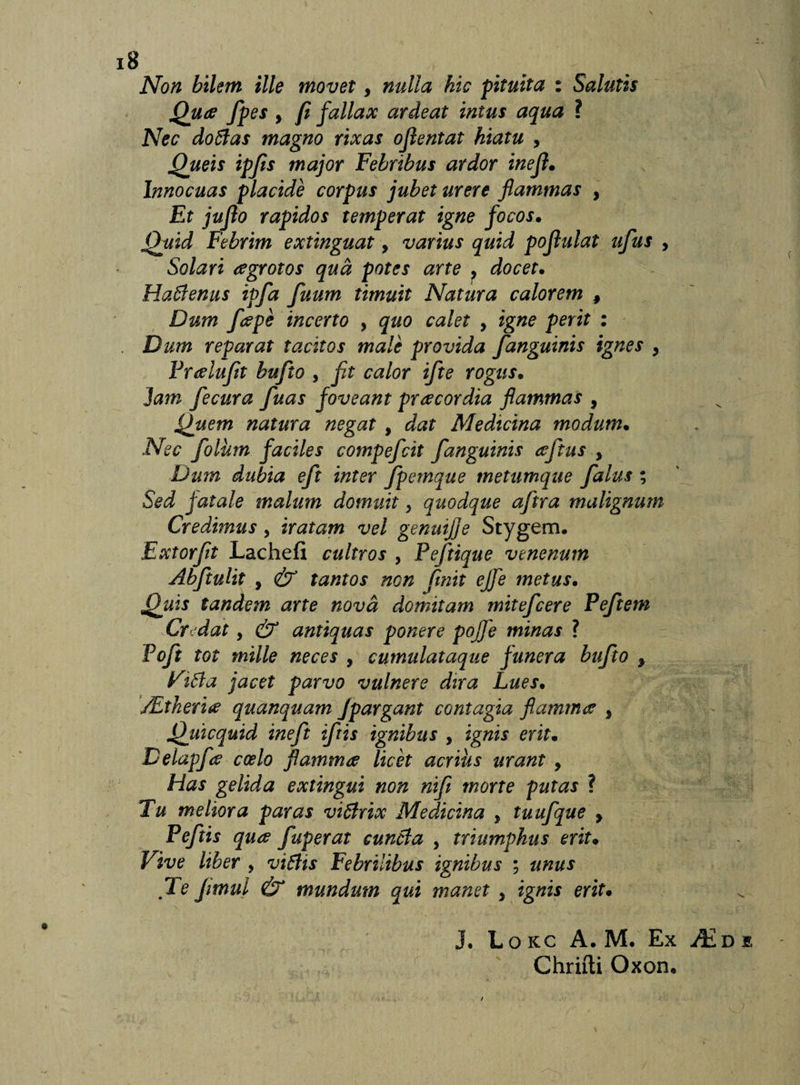 18
Non bilem ille movet , nulla hic pituita : Salutis
Quæ ſpes , ſi fallax ardeat intus aqua ?
Nec doctas magno rixas oſtentat hiatu ,
Queis ipſis major Febribus ardor ineſt.
Innocuas placidè corpus jubet urere flammas ,
Et juſto rapidos temperat igne focos.
Quid Febrim extinguat , varius quid poſtulat uſus ,
Solari ægrotos quâ potes arte , docet.
Hactenus ipſa ſuum timuit Natura calorem ,
Dum ſæpè incerto , quo calet , igne perit :
Dum reparat tacitos malè provida ſanguinis ignes ,
Præluſit buſto , fit calor iſte rogus.
Jam ſecura ſuas foveant præcordia flammas ,
Quem natura negat , dat Medicina modum.
Nec ſolùm faciles compeſcit ſanguinis æſtus ,
Dum dubia eſt inter ſpemque metumque ſalus ;
Sed fatale malum domuit , quodque aſtra malignum
Credimus , iratam vel genuiſſe Stygem.
Extorſit Lacheſi cultros , Peſtique venenum
Abſtulit , & tantos non ſinit eſſe metus.
Quis tandem arte novâ domitam miteſcere Peſtem
Credat , & antiquas ponere poſſe minas ?
Poſt tot mille neces , cumulataque funera buſto ,
Victa jacet parvo vulnere dira Lues.
Ætheriæ quanquam ſpargant contagia flammæ ,
Quicquid ineſt iſtis ignibus , ignis erit.
Delapſæ cœlo flammæ licèt acriùs urant ,
Has gelida extingui non niſi morte putas ?
Tu meliora paras victrix Medicina , tuuſque ,
Peſtis quæ ſuperat cuncta , triumphus erit.
Vive liber , victis Febrilibus ignibus ; unus
Te ſimul & mundum qui manet , ignis erit.
J. Lokc A. M. Ex Æde
Chriſti Oxon.